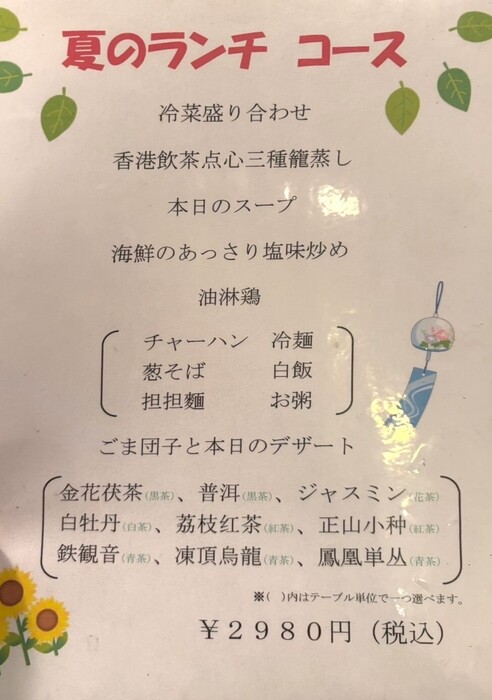 夏のランチ コース
冷菜盛り合わせ
香港飲茶点心三種籠蒸し
本日のスープ
海鮮のあっさり塩味炒め
油淋鶏
チャーハン 冷麺
葱そば 白飯
担担麺 お粥
ごま団子と本日のデザート
金花茯茶(黒茶)、普洱(黒茶)、ジャスミン(花茶)
白牡丹(白茶)、荔枝红茶(紅茶)、正山小种(紅茶)
鉄観音(青茶)、凍頂烏龍(青茶)、鳳凰単丛(青茶)
※( )内はテーブル単位で一つ選べます。
￥2980円(税込)